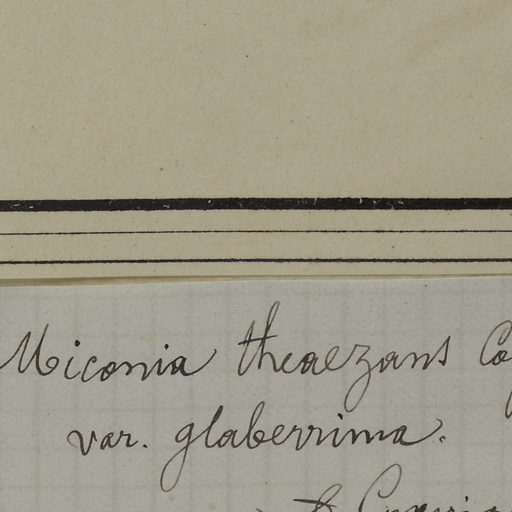 Miconia theaezans Co
var. glaberrima.